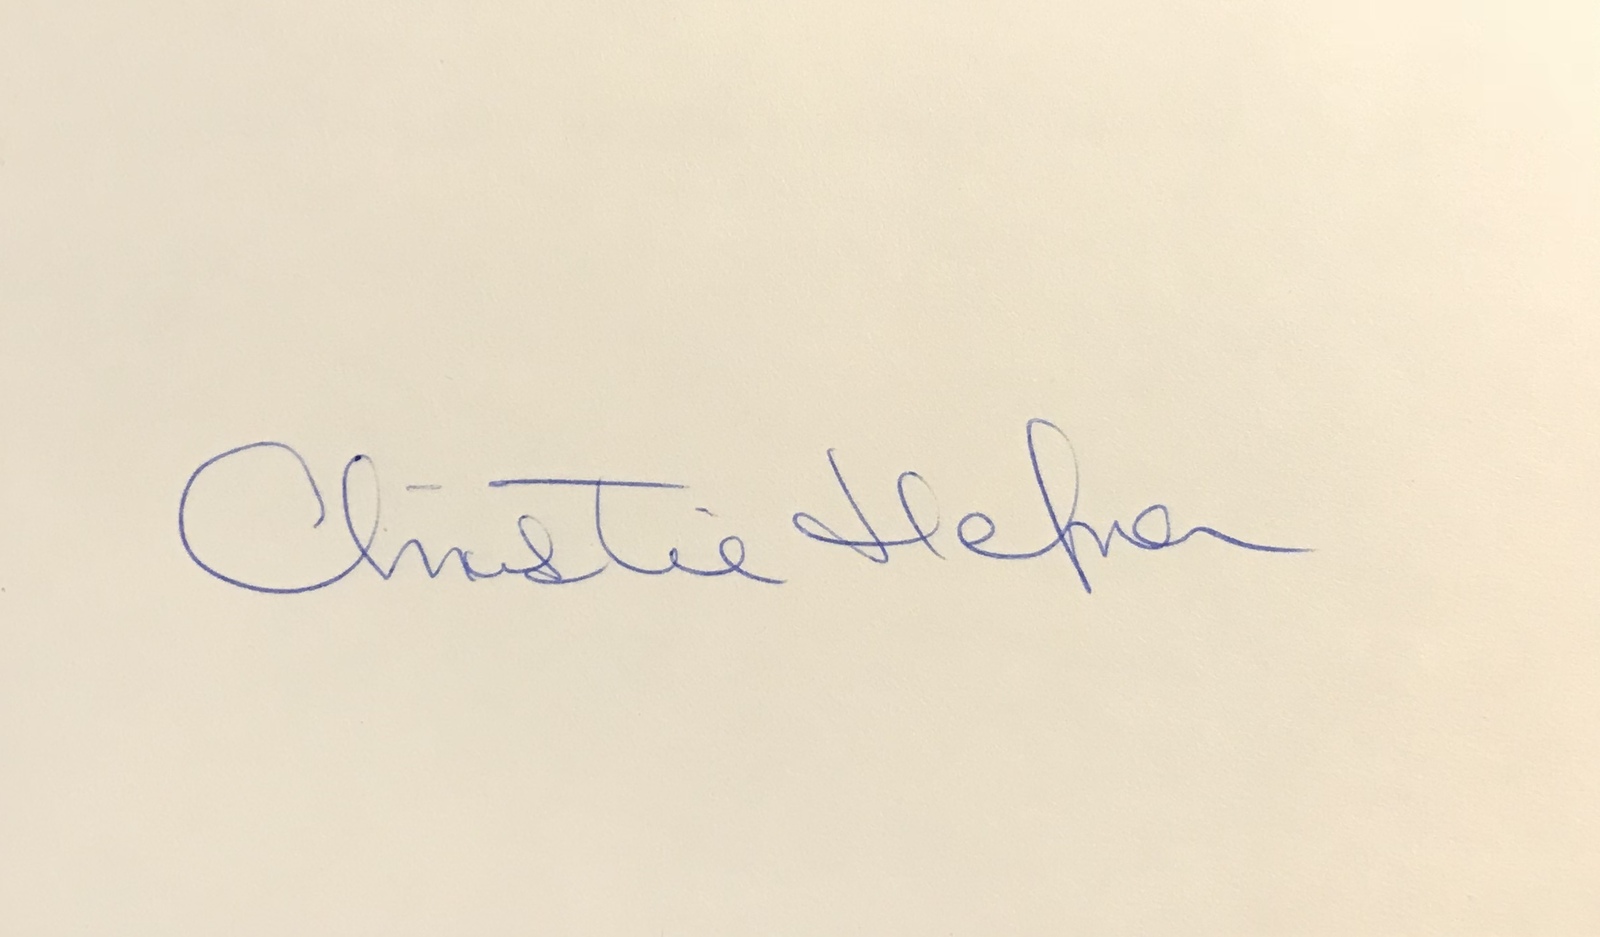 Christie Hefner